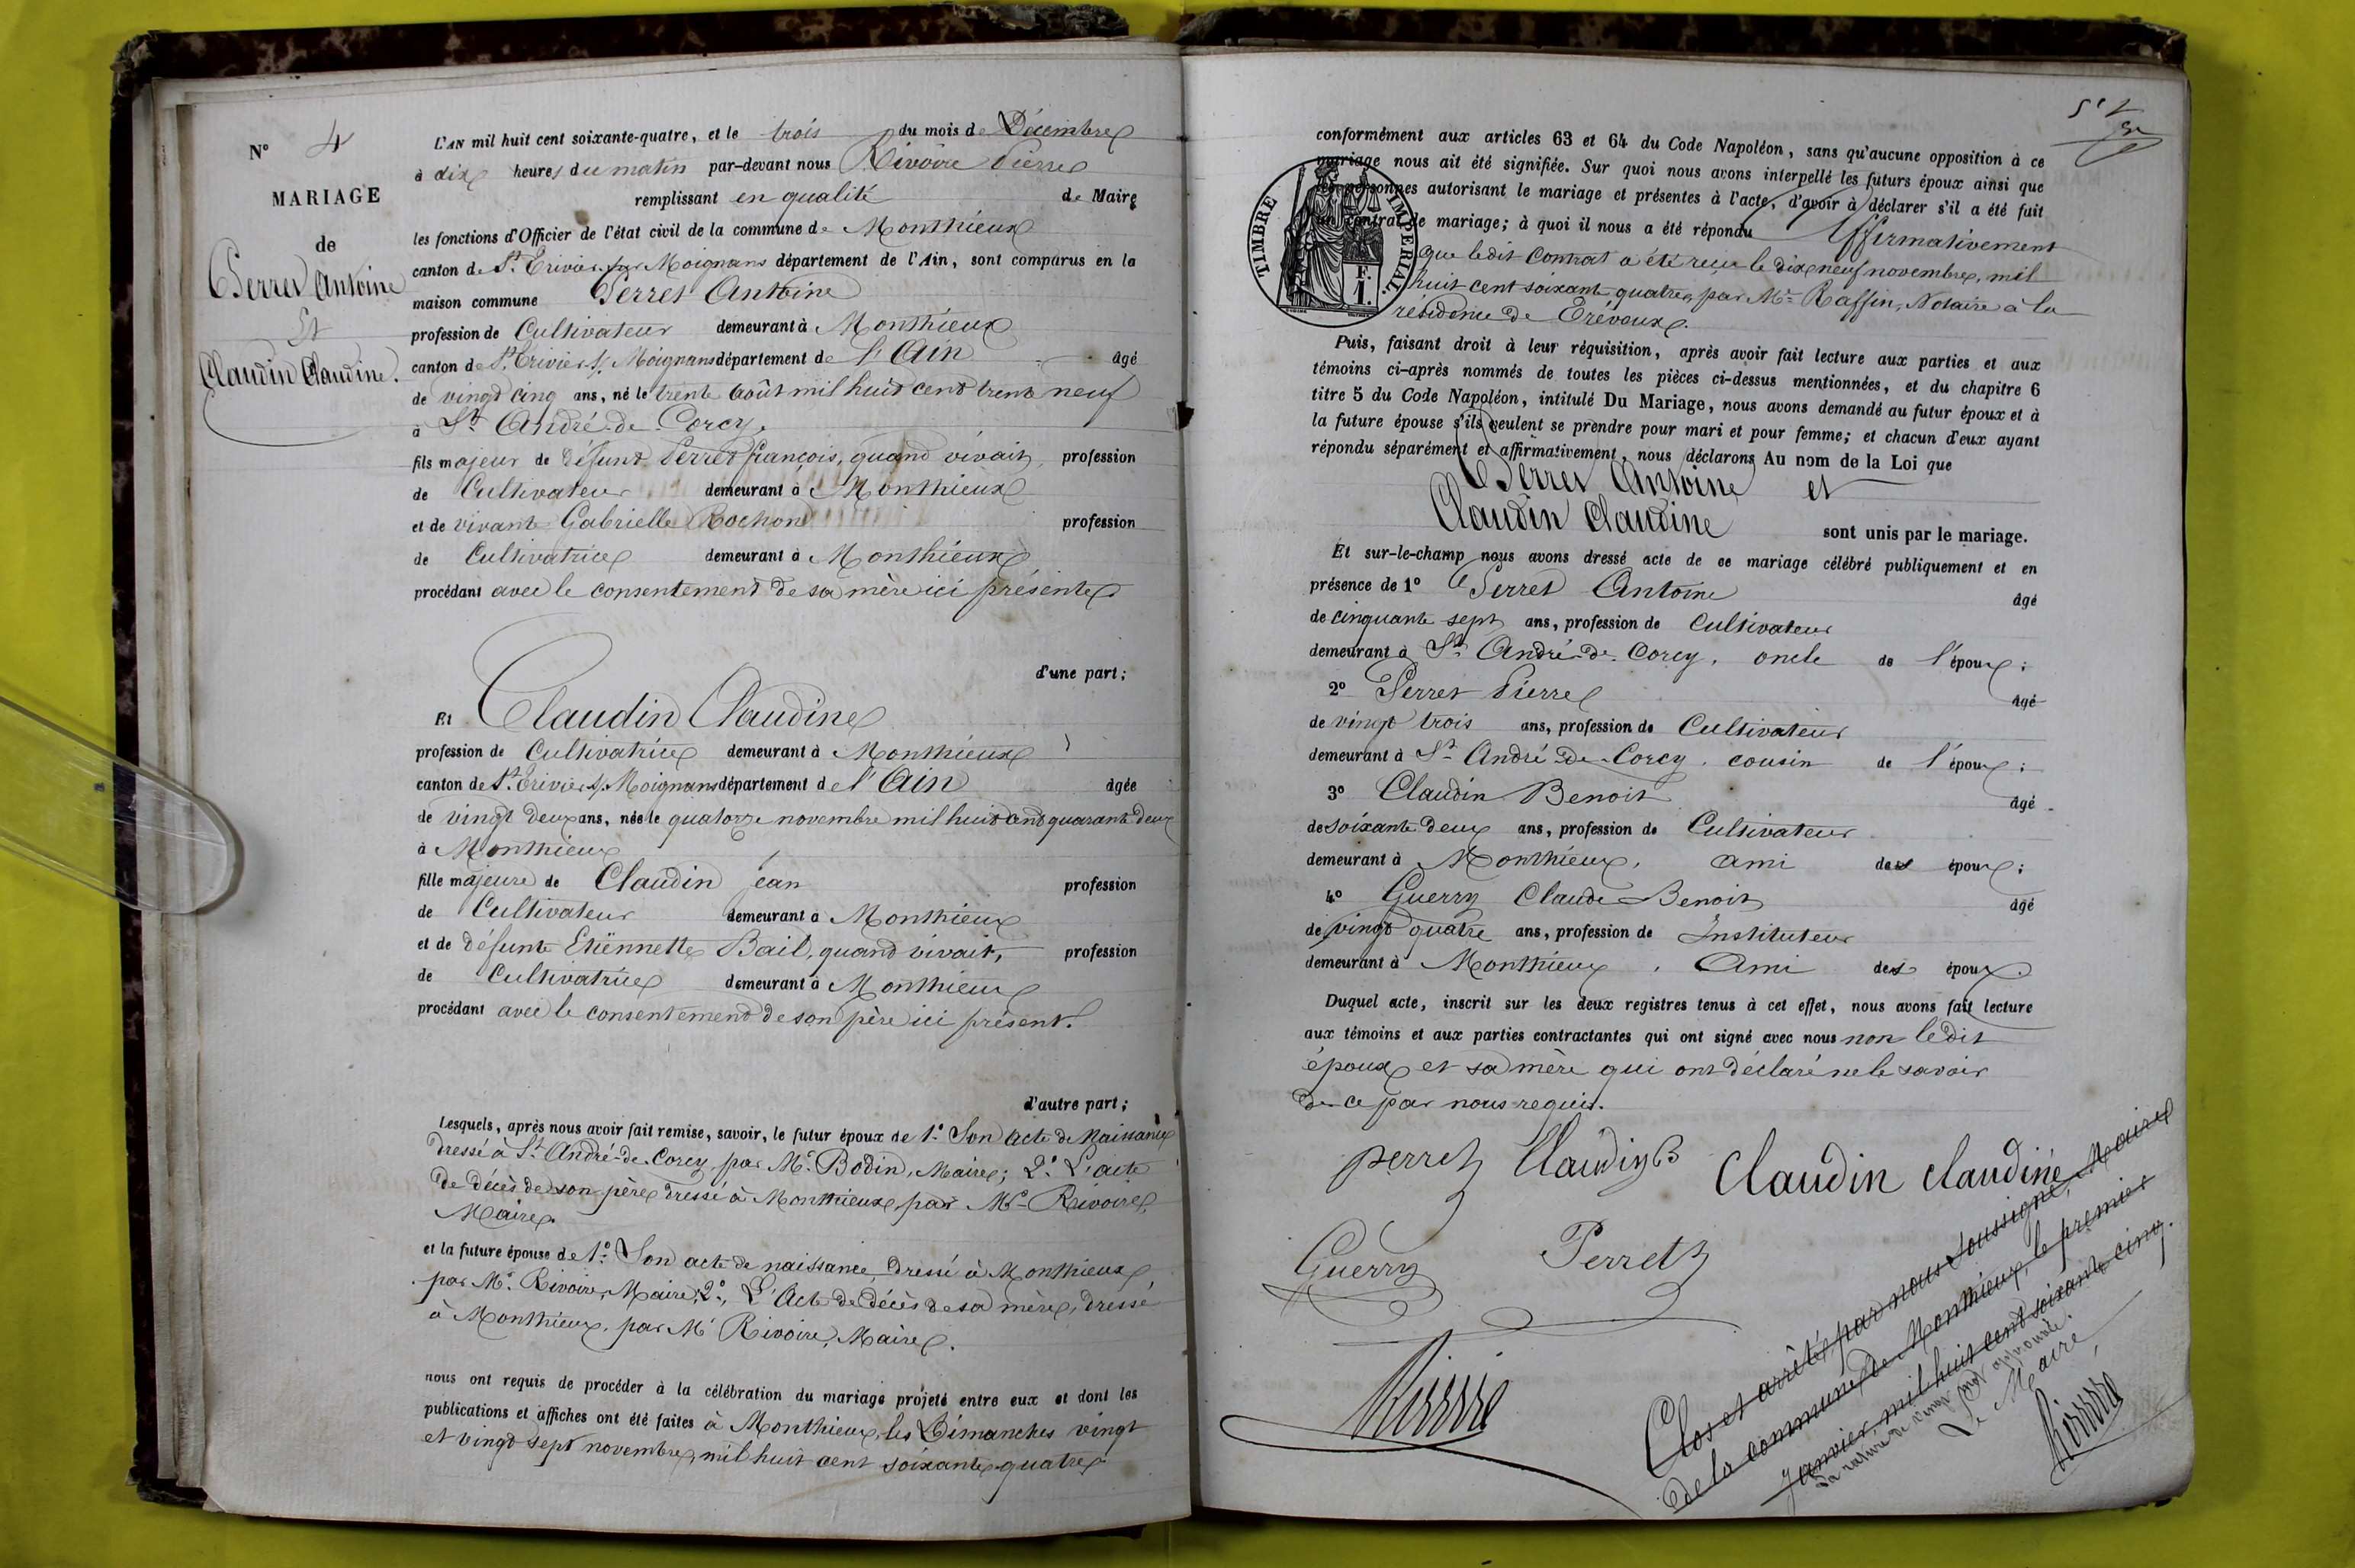 N° 4
MARIAGE
de
Perret Antoine
Et
Claudin Claudine.
L'AN mil huit cent soixante-quatre, et le trois du mois de Décembre
à dix heures du matin par-devant nous Rivoire Pierre
remplissant en qualité de Maire
les fonctions d'Officier de l'état civil de la commune de Monthieux
canton de St. Trivier sur Moignans département de l'Ain, sont comparus en la
maison commune Perret Antoine
profession de Cultivateur demeurant à Monthieux
canton de St. Trivier s/. Moignans département de l'Ain âgé
de vingt cinq ans, né le trente août mil huit cent trente neuf
à St. André-de-Corcy.
fils majeur de défunt Perret françois, quand vivait, profession
de Cultivateur demeurant à Monthieux
et de vivante Gabrielle Rochon profession
de Cultivatrice demeurant à Monthieux
procédant avec le consentement de sa mère ici présente
d'une part;
Et Claudin Claudine
profession de Cultivatrice demeurant à Monthieux
canton de St. Trivier s/. Moignans département de l'Ain âgée
de vingt deux ans, née le quatorze novembre mil huit cent quarante deux
à Monthieux
fille majeure de Claudin jean profession
de Cultivateur demeurant à Monthieux
et de défunte Etiënnette Bail, quand vivait, profession
de Cultivatrice demeurant à Monthieux
procédant avec le consentement de son père ici présent.
d'autre part;
Lesquels, après nous avoir fait remise, savoir, le futur époux de 1°. Son acte de Naissance
dressé à St. André-de-Corcy, par Mr. Bodin, Maire; 2°. L'acte
de décès de son père dressé à Monthieux, par Mr. Rivoire,
Maire.
et la future épouse de 1°. Son acte de naissance, dressé à Monthieux,
par Mr. Rivoire, Maire; 2°., L'Acte de décès de sa mère, dressé
à Monthieux, par Mr Rivoire, Maire.
nous ont requis de procéder à la célébration du mariage projeté entre eux et dont les
publications et affiches ont été faites à Monthieux, les Dimanches vingt
et vingt sept novembre, mil huit cent soixante-quatre
conformément aux articles 63 et 64 du Code Napoléon, sans qu'aucune opposition à ce
mariage nous ait été signifiée. Sur quoi nous avons interpellé les futurs époux ainsi que
les personnes autorisant le mariage et présentes à l'acte, d'avoir à déclarer s'il a été fait
un contrat de mariage; à quoi il nous a été répondu Affirmativement
que ledit Contrat a été reçu le dix neuf novembre, mil
huit cent soixante quatre, par Mr. Raffin, Notaire à la
résidence de Trévoux.
TIMBRE IMPERIAL.
Puis, faisant droit à leur réquisition, après avoir fait lecture aux parties et aux
témoins ci-après nommés de toutes les pièces ci-dessus mentionnées, et du chapitre 6
titre 5 du Code Napoléon, intitulé Du Mariage, nous avons demandé au futur époux et à
la future épouse s'ils veulent se prendre pour mari et pour femme; et chacun d'eux ayant
répondu séparément et affirmativement, nous déclarons Au nom de la Loi que
Perret Antoine et
Claudin Claudine sont unis par le mariage.
Et sur-le-champ nous avons dressé acte de ce mariage célébré publiquement et en
présence de 1° Perret Antoine âgé
de cinquante sept ans, profession de Cultivateur
demeurant à St. André-de-Corcy, oncle de l'époux;
2° Perret Pierre âgé
de vingt trois ans, profession de Cultivateur
demeurant à St. André-de-Corcy, cousin de l'époux;
3° Claudin Benoit âgé
de soixante deux ans, profession de Cultivateur
demeurant à Monthieux, ami des époux;
4° Guerry Claude Benoit âgé
de vingt quatre ans, profession de Instituteur
demeurant à Monthieux, Ami des époux.
Duquel acte, inscrit sur les deux registres tenus à cet effet, nous avons fait lecture
aux témoins et aux parties contractantes qui ont signé avec nous non ledit
époux et sa mère qui ont déclaré ne le savoir
de ce par nous requis.
perret Claudin B Claudin claudine
Guerry Perret
Rivoire
Clos et arrêté par nous soussigné, Maire
de la commune de Monthieux, le premier
Janvier mil huit cent soixante cinq.
La rature de vingt mots approuvée.
Le Maire,
Rivoire